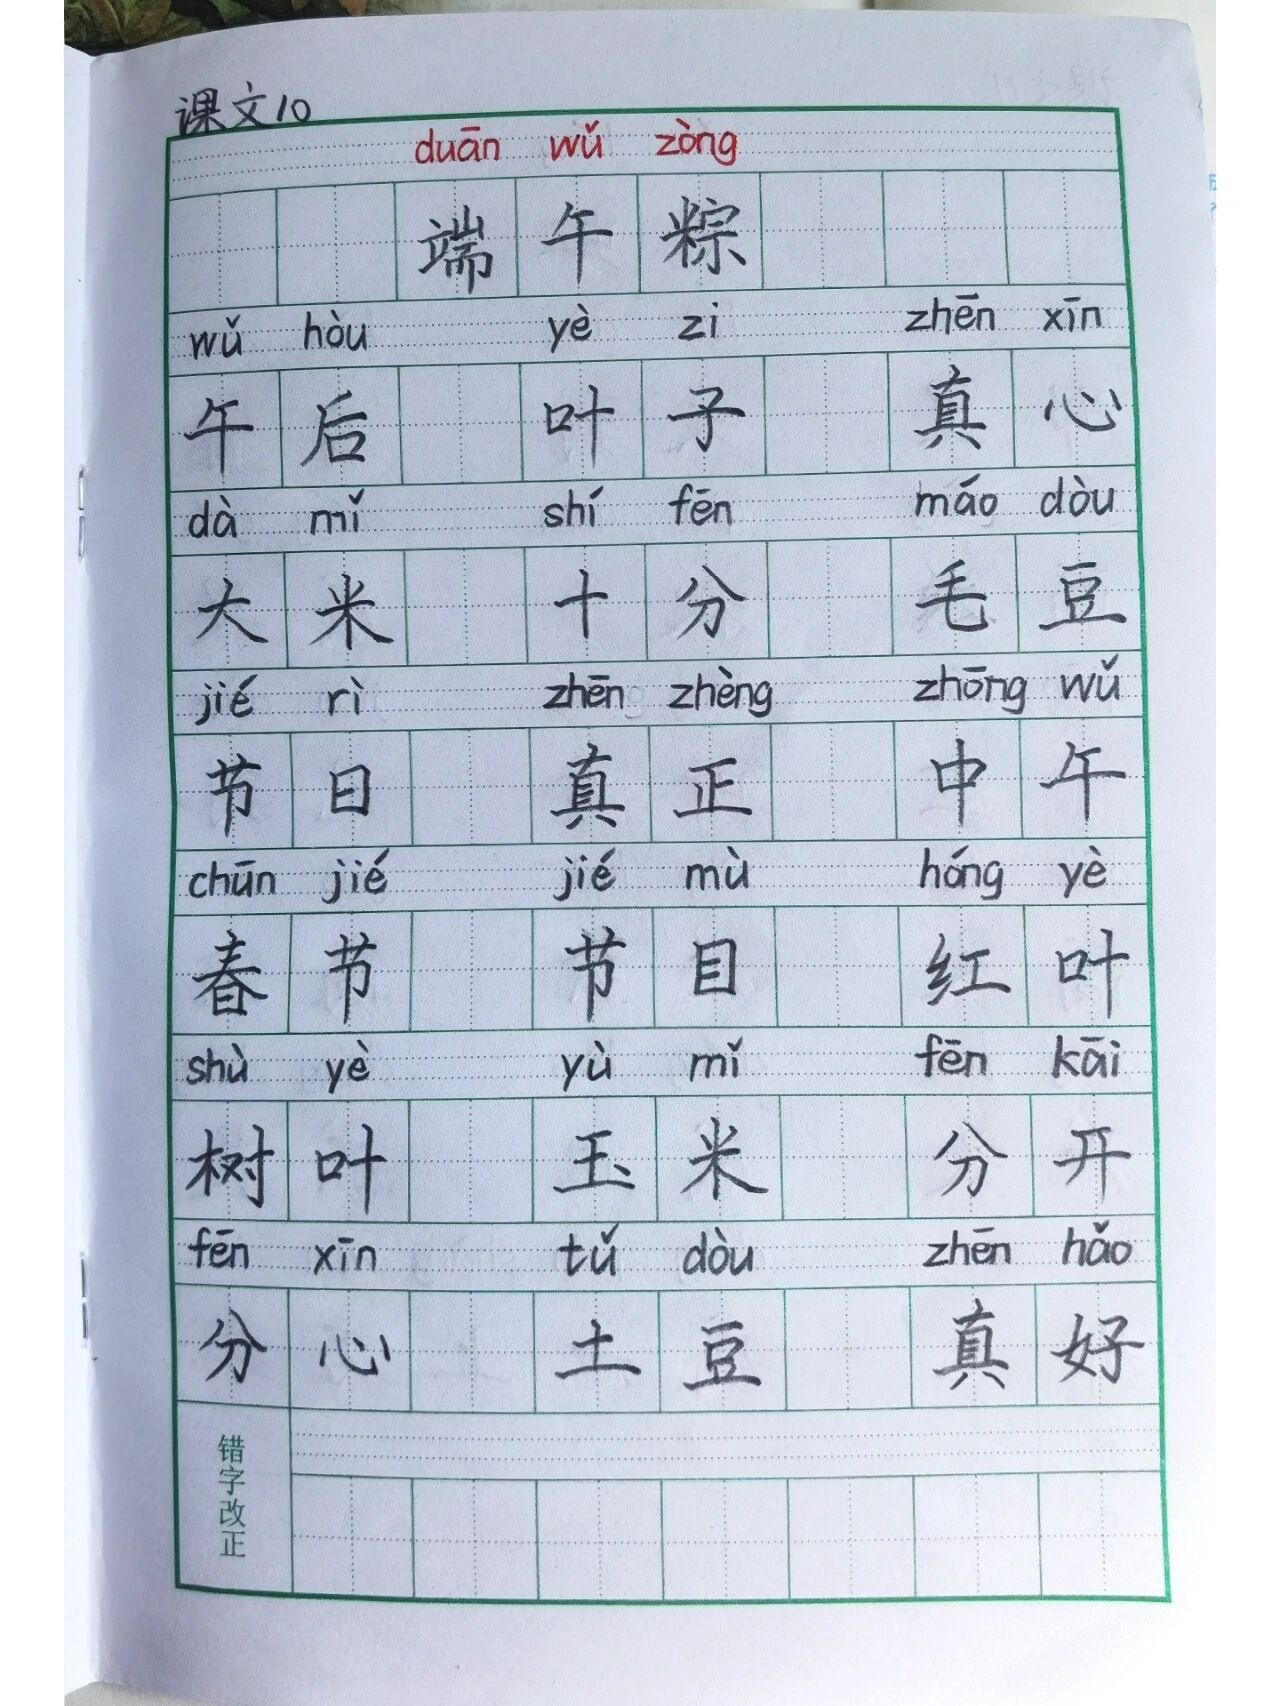 课文10
duān wǔ zòng
端午粽
wǔ hòu yè zi zhēn xīn
午后 叶子 真心
dà mǐ shí fēn máo dòu
大米 十分 毛豆
jié rì zhēn zhèng zhōng wǔ
节日 真正 中午
chūn jié jié mù hóng yè
春节 节目 红叶
shù yè yù mǐ fēn kāi
树叶 玉米 分开
fēn xīn tǔ dòu zhēn hǎo
分心 土豆 真好
错字改正